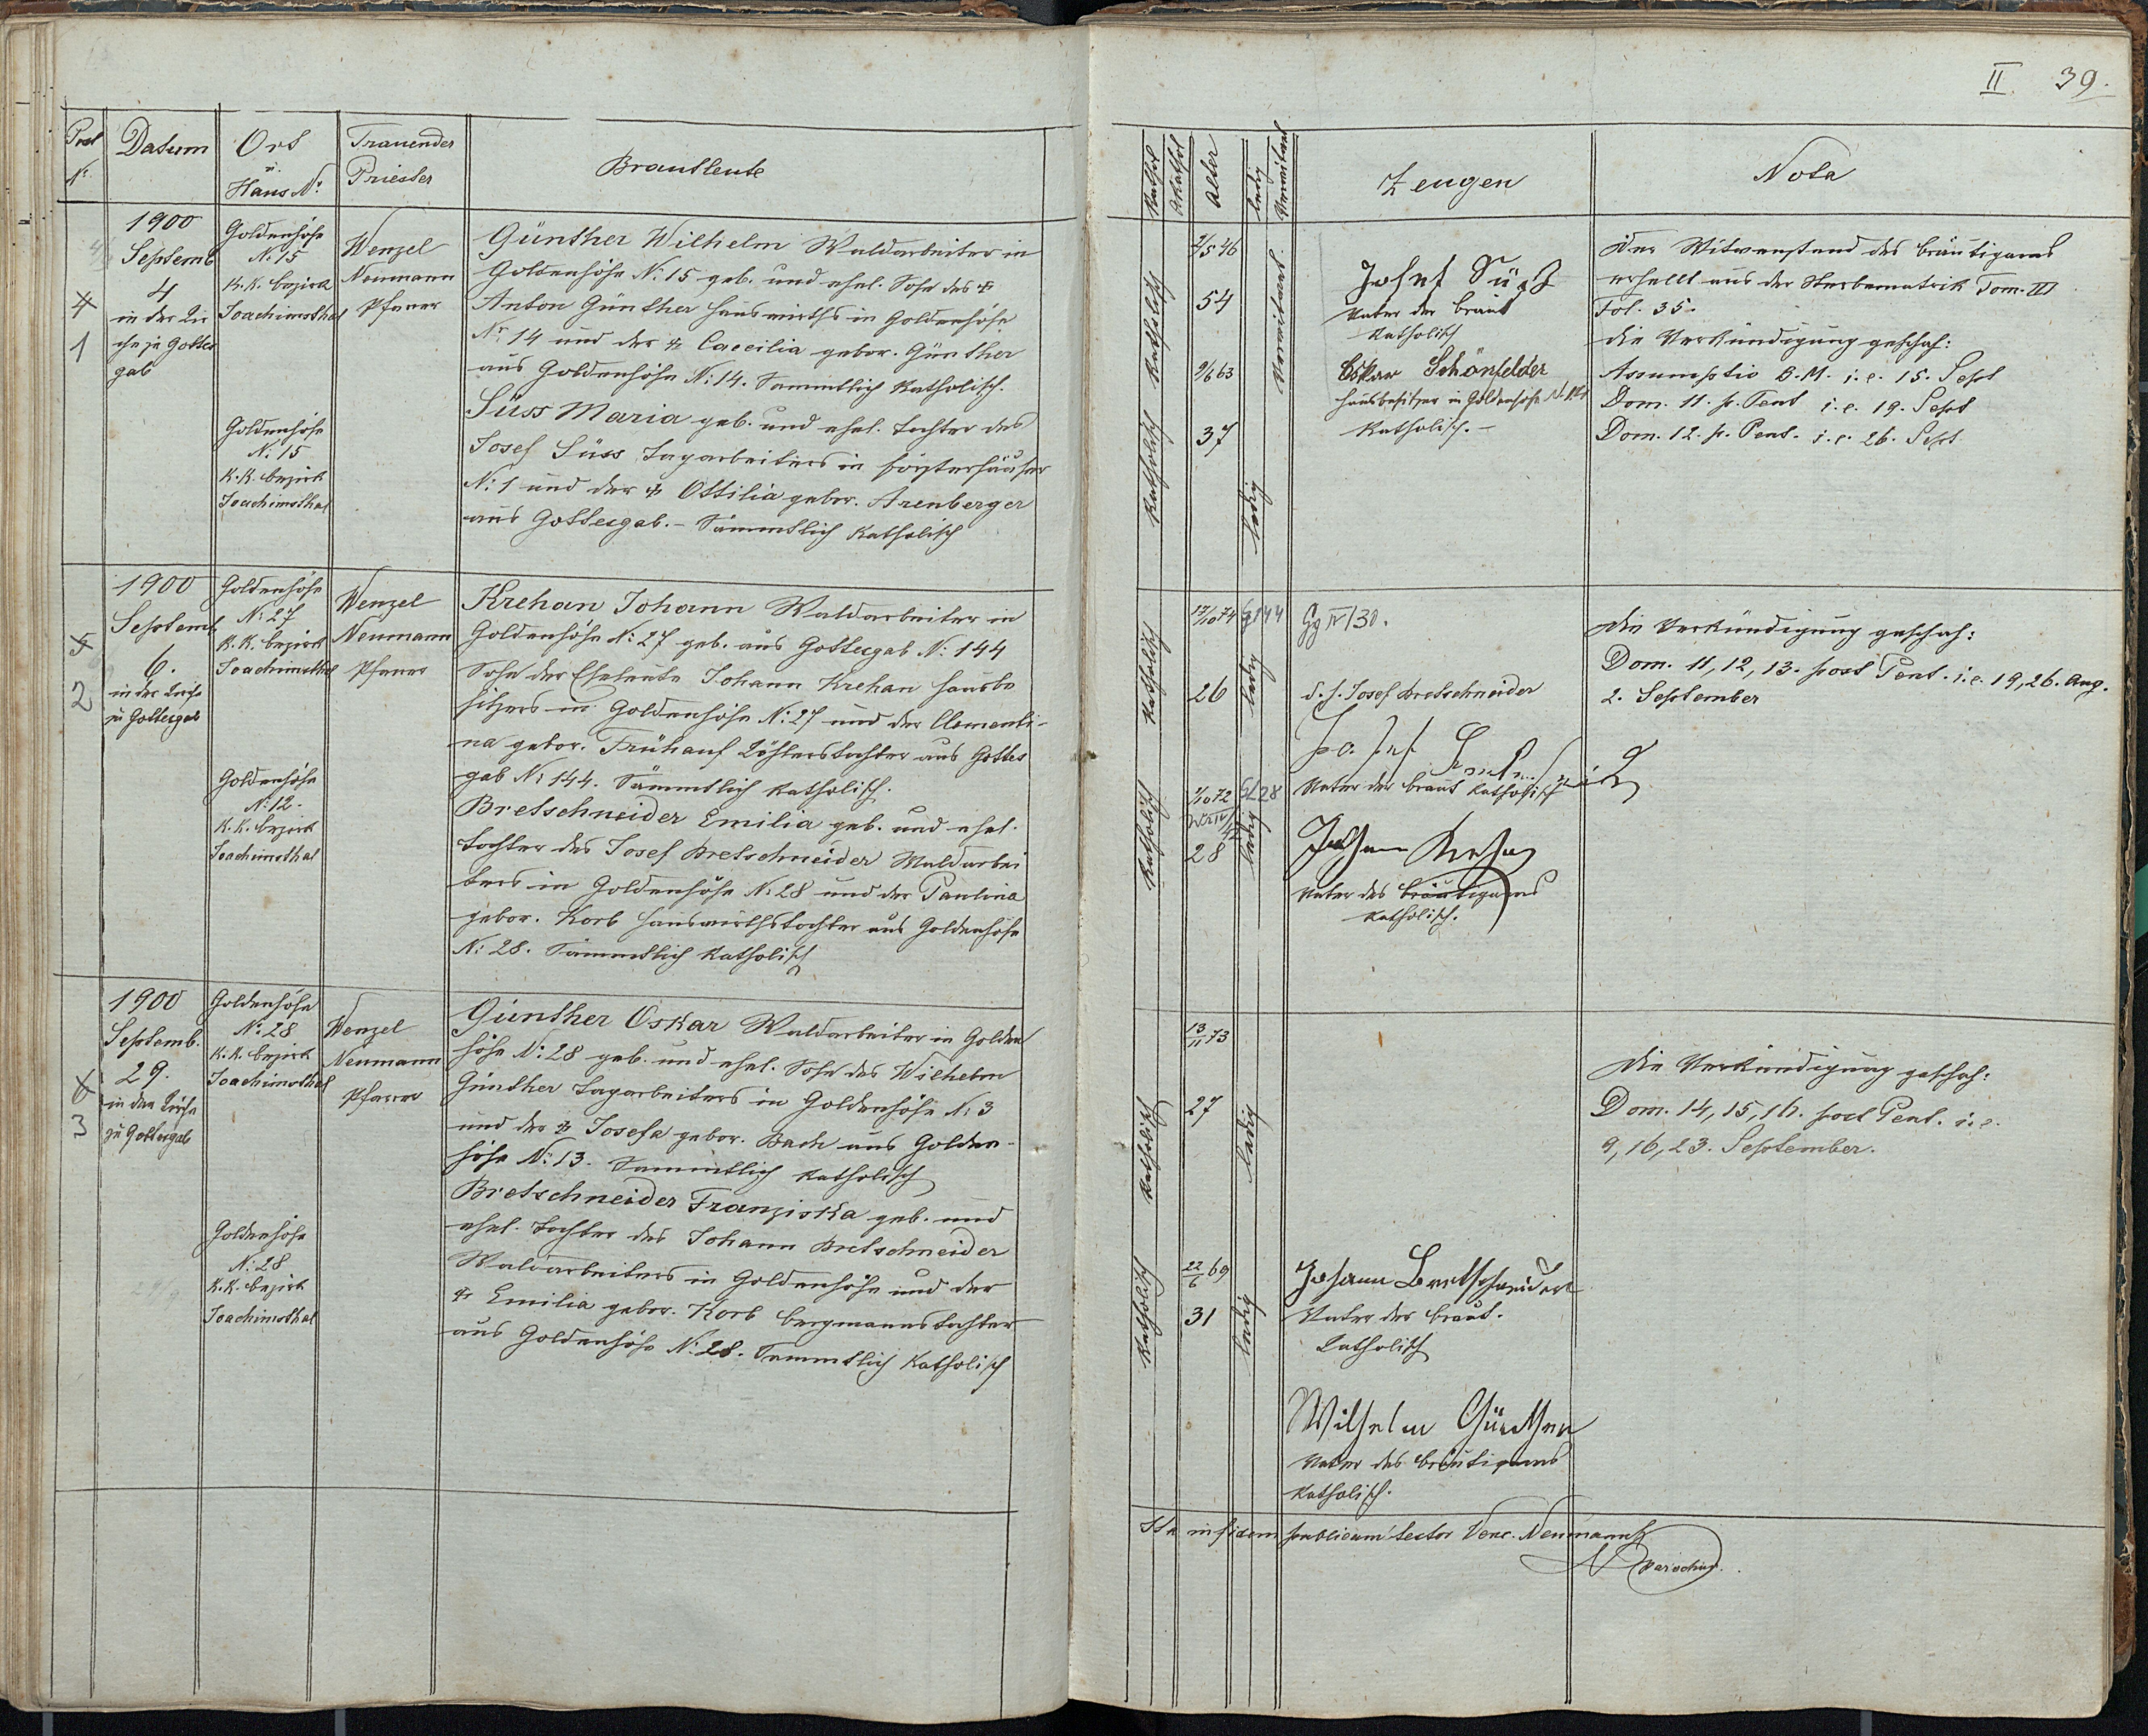 II. 39.
Post
No.
Datum
Ort
u.
Haus No.
Trauender
Priester
Brautleute
Kathol
Akathol
Alter
ledig
Verwitwet
Zeugen
Nota
4
1
1900
Septemb
4
in der Kir
che zu Gottes
gab
Goldenhöhe
No. 15
K.K. Bezirk
Joachimsthal
Goldenhöhe
No. 15
K.K. Bezirk
Joachimsthal
Wenzel
Neumann
Pfarrer
Günther Wilhelm Waldarbeiter in
Goldenhöhe No. 15 geb. und ehel. Sohn des †
Anton Günther Hauswirths in Goldenhöhe
No. 14 und der † Caecilia gebor. Günther
aus Goldenhöhe No. 14. Sammtlich Katholisch.
Süss Maria geb. und ehel. Tochter des
Josef Süss Tagarbeiters in Försterhäuser
No. 1 und der † Ottilia gebor. Arenberger
aus Gottesgab. – Sämmtlich Katholisch
Katholisch
Katholisch
2/5 46
54
9/6 63
37
Verwitwet
ledig
Josef Süß
Vater der Braut
Katholisch
Oskar Schönfelder
Hausbesitzer in Goldenhöhe
Katholisch. –
Der Witwenstand des Bräutigams
erhellt aus der Sterbematrik Tom. III
Fol. 35.
Die Verkündigung geschah:
Assumptio B.M. i.e. 15. Sept
Dom. 11. p. Pent i.e. 19. Sept
Dom. 12. p. Pent. i.e. 26. Sept
5
2
1900
Septemb
6.
in der Kirche
zu Gottesgab
Goldenhöhe
No. 27
K.K. Bezirk
Joachimsthal
Goldenhöhe
No. 12.
K.K. Bezirk
Joachimsthal
Wenzel
Neumann
Pfarrer
Krehan Johann Waldarbeiter in
Goldenhöhe No. 27 geb. aus Gottesgab No. 144
Sohn der Eheleute Johann Krehan Hausbe
sitzers in Goldenhöhe No. 27 und der Clementi-
na gebor. Frühauf aus Gottes
gab No. 144. Sämmtlich Katholisch.
Bretschneider Emilia geb. und ehel.
Tochter des Josef Bretschneider Waldarbei
ters in Goldenhöhe No. 28 und der Paulina
gebor. Korb Hauswirthstochter aus Goldenhöhe
No. 28. Sämmtlich Katholisch
Katholisch
Katholisch
17/10 74
26
1/10 72
28
G 144
ledig
G 28
ledig
Gg IV/30.
d. h. Josef Bretschneider
Vater der Braut Katholisch
Johann Krehan
Vater des Bräutigams
Katholisch.
Die Verkündigung geschah:
Dom. 11, 12, 13. post Pent. i.e. 19, 26. Aug.
2. September
6
3
1900
Septemb.
29.
in der Kirche
zu Gottesgab
Goldenhöhe
No. 28
K.K. Bezirk
Joachimsthal
Goldenhöhe
No. 28
K.K. Bezirk
Joachimsthal
Wenzel
Neumann
Pfarrer
Günther Oskar Waldarbeiter in Golden
höhe No. 28 geb. und ehel. Sohn des Wilhelm
Günther Tagarbeiters in Goldenhöhe No. 3
und der † Josefa gebor. Bach aus Golden-
höhe No. 13. Sammtlich Katholisch
Bretschneider Franziska geb. und
ehel. Tochter des Johann Bretschneider
Waldarbeiters in Goldenhöhe und der
† Emilia gebor. Korb Bergmannstochter
aus Goldenhöhe No. 28. Sammtlich Katholisch
Katholisch
Katholisch
13/11 73
27
22/6 69
31
ledig
ledig
Johann Bretschneider
Vater der Braut.
Katholisch
Wilhelm Günther
Vater des Bräutigams
Katholisch.
Die Verkündigung geschah:
Dom. 14, 15, 16. post Pent. i.e.
9, 16, 23. September.
Ita in fidem publicam testor Venc. Neumann
Parochus.